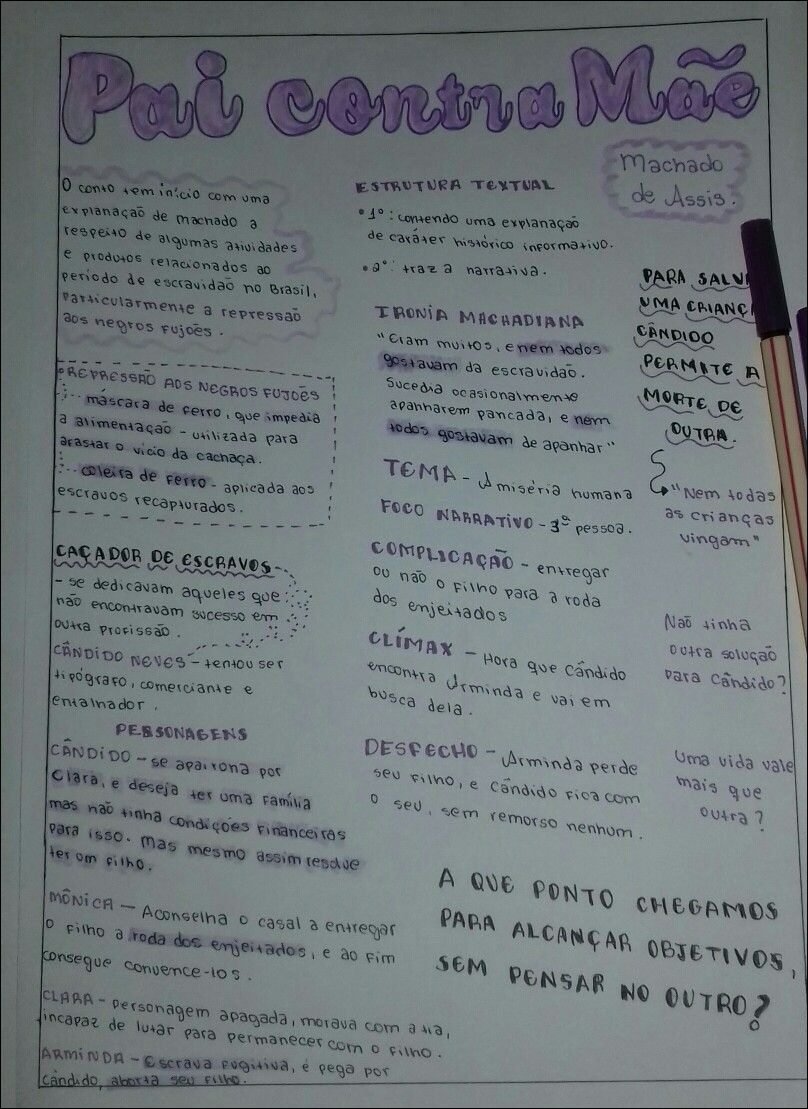 Pai contra Mãe
Machado
de Assis.
O conto tem início com uma
explanação de machado a
respeito de algumas atividades
e produtos relacionados ao
período de escravidão no Brasil,
particularmente a repressão
aos negros fujões.
REPRESSÃO AOS NEGROS FUJÕES
máscara de ferro, que impedia
a alimentação - utilizada para
afastar o vício da cachaça.
coleira de ferro - aplicada aos
escravos recapturados.
CAÇADOR DE ESCRAVOS
- se dedicavam aqueles que
não encontravam sucesso em
outra profissão.
CÂNDIDO NEVES - tentou ser
tipógrafo, comerciante e
entalhador.
PERSONAGENS
CÂNDIDO - se apaixona por
Clara, e deseja ter uma família
mas não tinha condições financeiras
para isso. Mas mesmo assim resolve
ter um filho.
MÔNICA - Aconselha o casal a entregar
o filho a roda dos enjeitados, e ao fim
consegue convence-los.
CLARA - personagem apagada, morava com a tia,
incapaz de lutar para permanecer com o filho.
ARMINDA - Escrava fugitiva, é pega por
cândido, aborta seu filho.
ESTRUTURA TEXTUAL
• 1º: contendo uma explanação
de caráter histórico informativo.
• 2º: traz a narrativa.
IRONIA MACHADIANA
"Eram muitos, e nem todos
gostavam da escravidão.
Sucedia ocasionalmente
apanharem pancada, e nem
todos gostavam de apanhar"
TEMA - A miséria humana
FOCO NARRATIVO - 3ª pessoa.
COMPLICAÇÃO - entregar
ou não o filho para a roda
dos enjeitados
CLÍMAX - Hora que cândido
encontra Arminda e vai em
busca dela.
DESFECHO - Arminda perde
seu filho, e Cândido fica com
o seu, sem remorso nenhum.
PARA SALV
UMA CRIANÇ
CÂNDIDO
PERMITE A
MORTE DE
OUTRA.
"Nem todas
as crianças
vingam"
Não tinha
outra solução
para Cândido?
Uma vida vale
mais que
outra?
A QUE PONTO CHEGAMOS
PARA ALCANÇAR OBJETIVOS,
SEM PENSAR NO OUTRO?